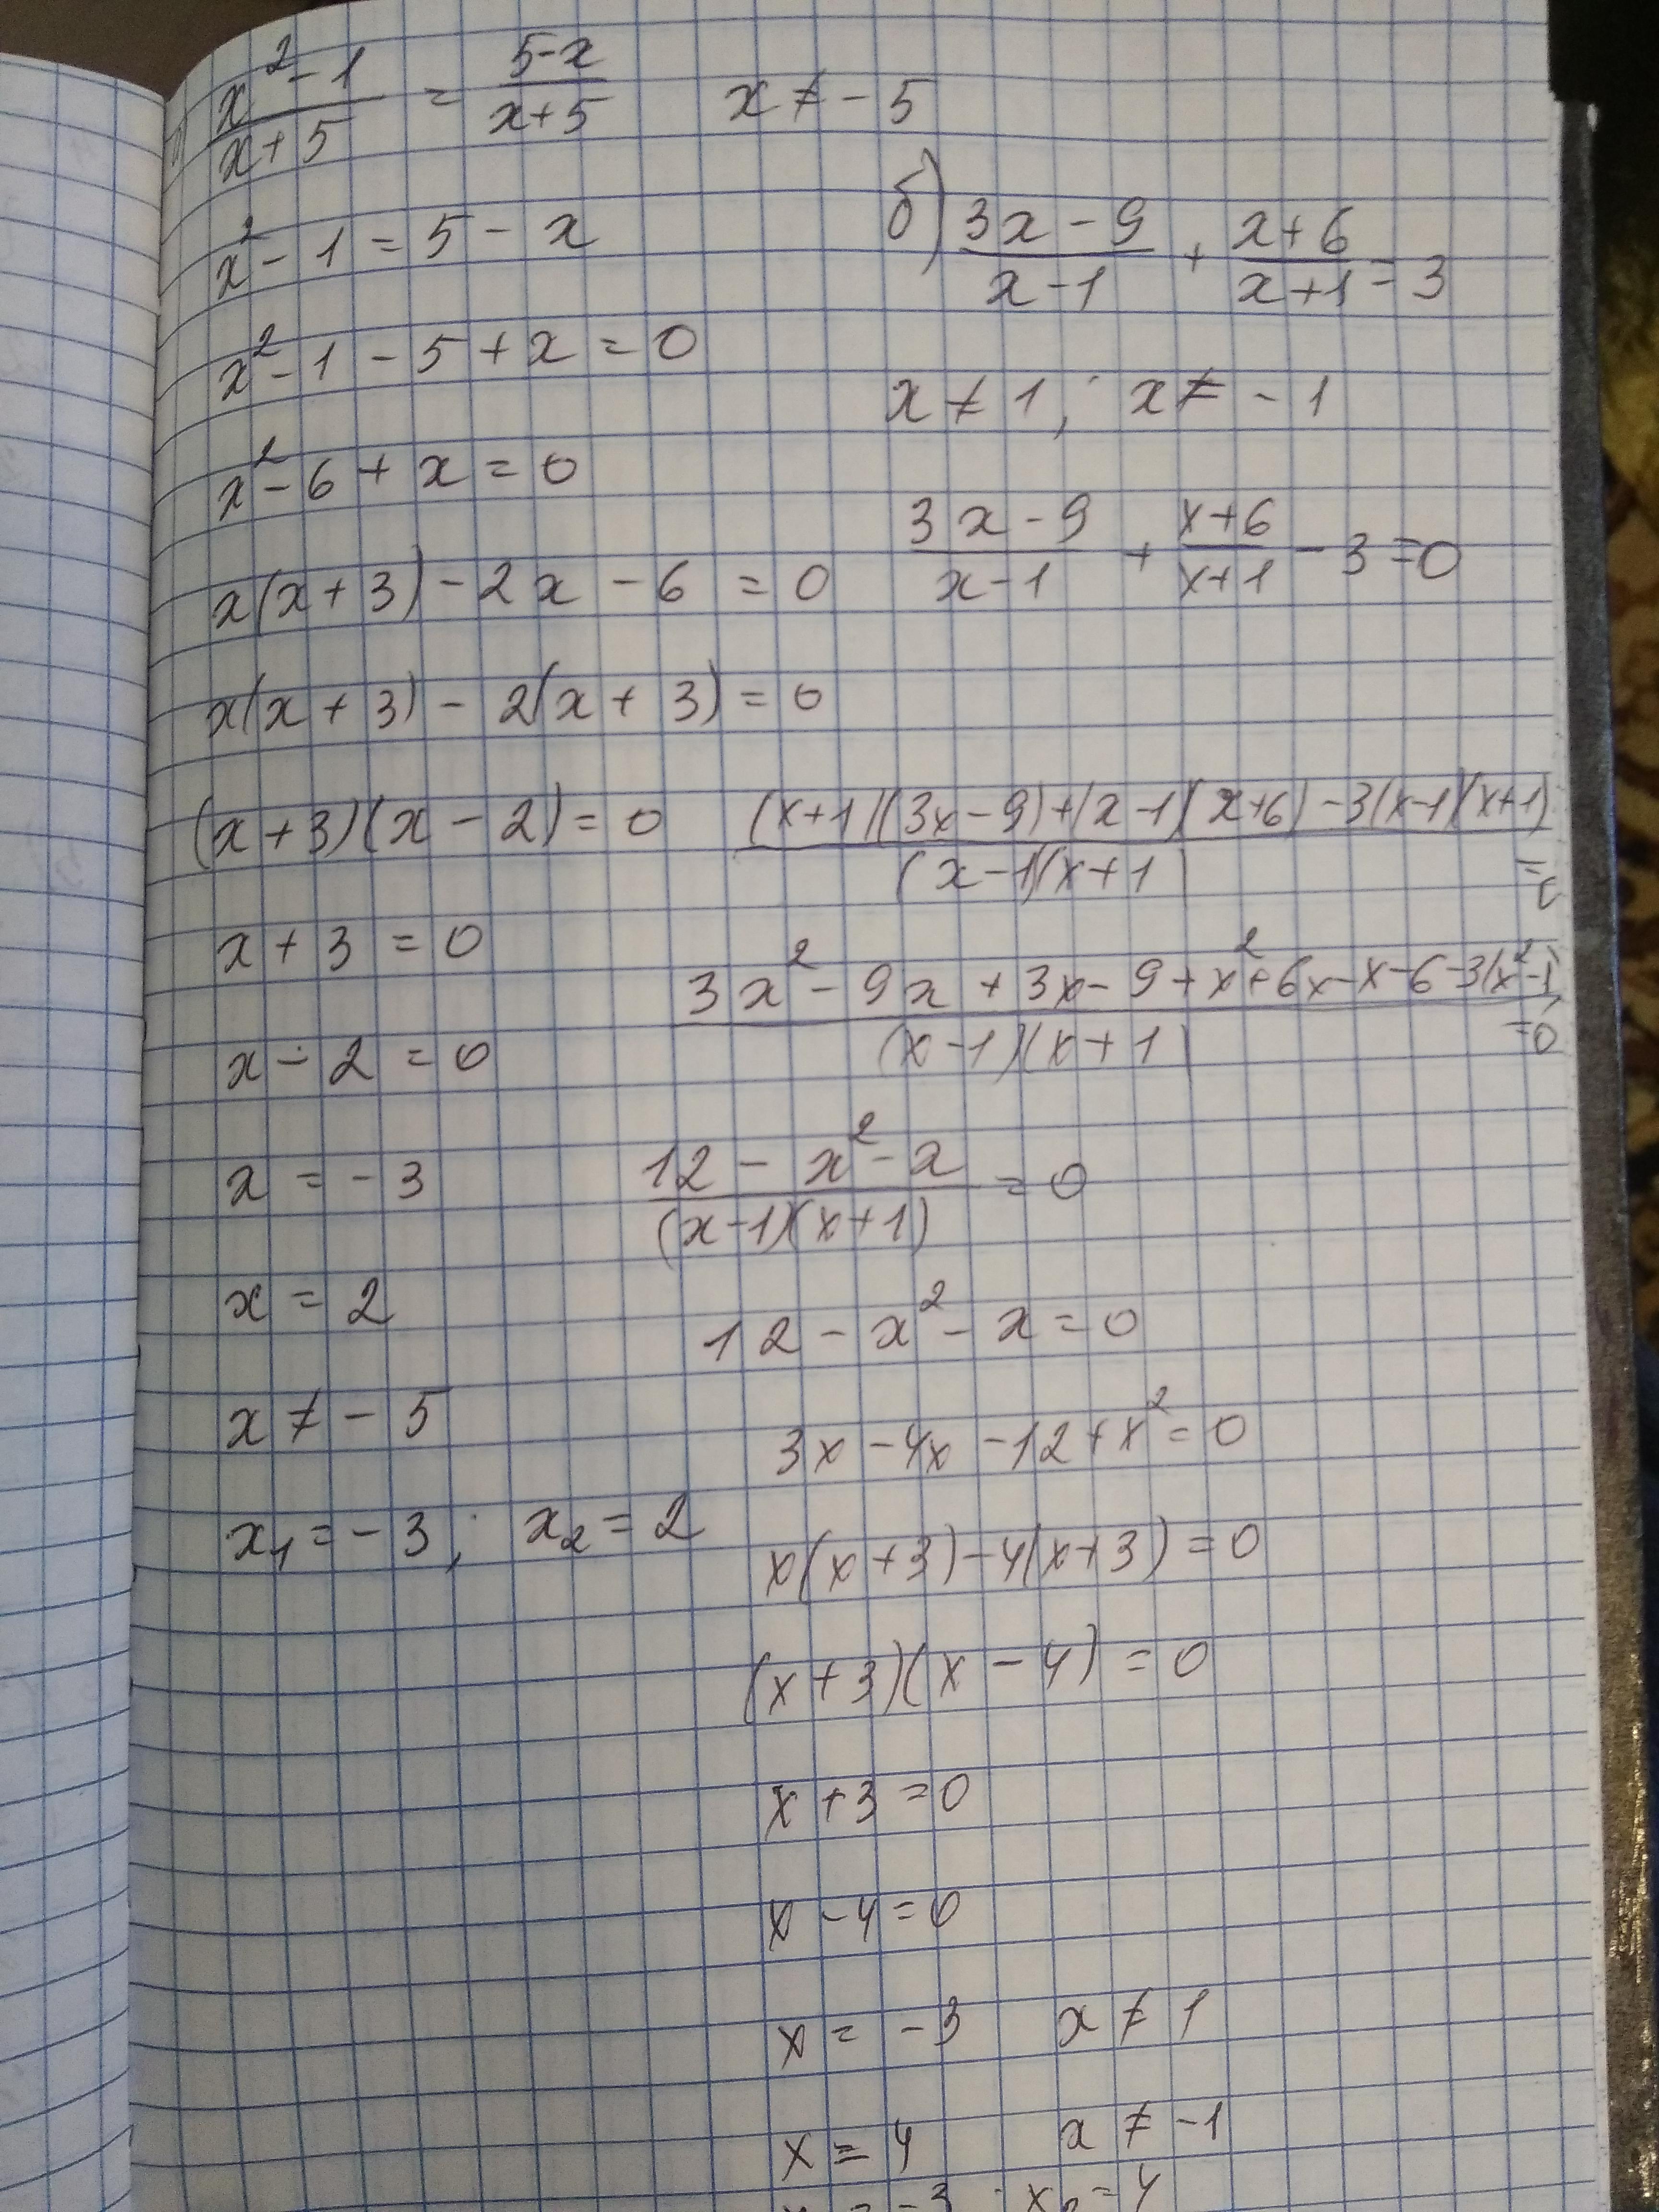 x² - 1 / x + 5 = 5 - x / x + 5   x ≠ - 5
x² - 1 = 5 - x
x² - 1 - 5 + x = 0
x² - 6 + x = 0
x(x + 3) - 2x - 6 = 0
x(x + 3) - 2(x + 3) = 0
(x + 3)(x - 2) = 0
x + 3 = 0
x - 2 = 0
x = - 3
x = 2
x ≠ - 5
x₁ = - 3; x₂ = 2
б) 3x - 9 / x - 1 + x + 6 / x + 1 = 3
x ≠ 1; x ≠ - 1
3x - 9 / x - 1 + x + 6 / x + 1 - 3 = 0
(x + 1)(3x - 9) + (x - 1)(x + 6) - 3(x - 1)(x + 1) / (x - 1)(x + 1) =
3x² - 9x + 3x - 9 + x² + 6x - x - 6 - 3(x² - 1) / (x - 1)(x + 1) = 0
12 - x² - x / (x - 1)(x + 1) = 0
12 - x² - x = 0
3x - 4x - 12 + x² = 0
x(x + 3) - 4(x + 3) = 0
(x + 3)(x - 4) = 0
x + 3 = 0
x - 4 = 0
x = - 3   x ≠ 1
x = 4   x ≠ - 1
= - 3   x₂ = 4